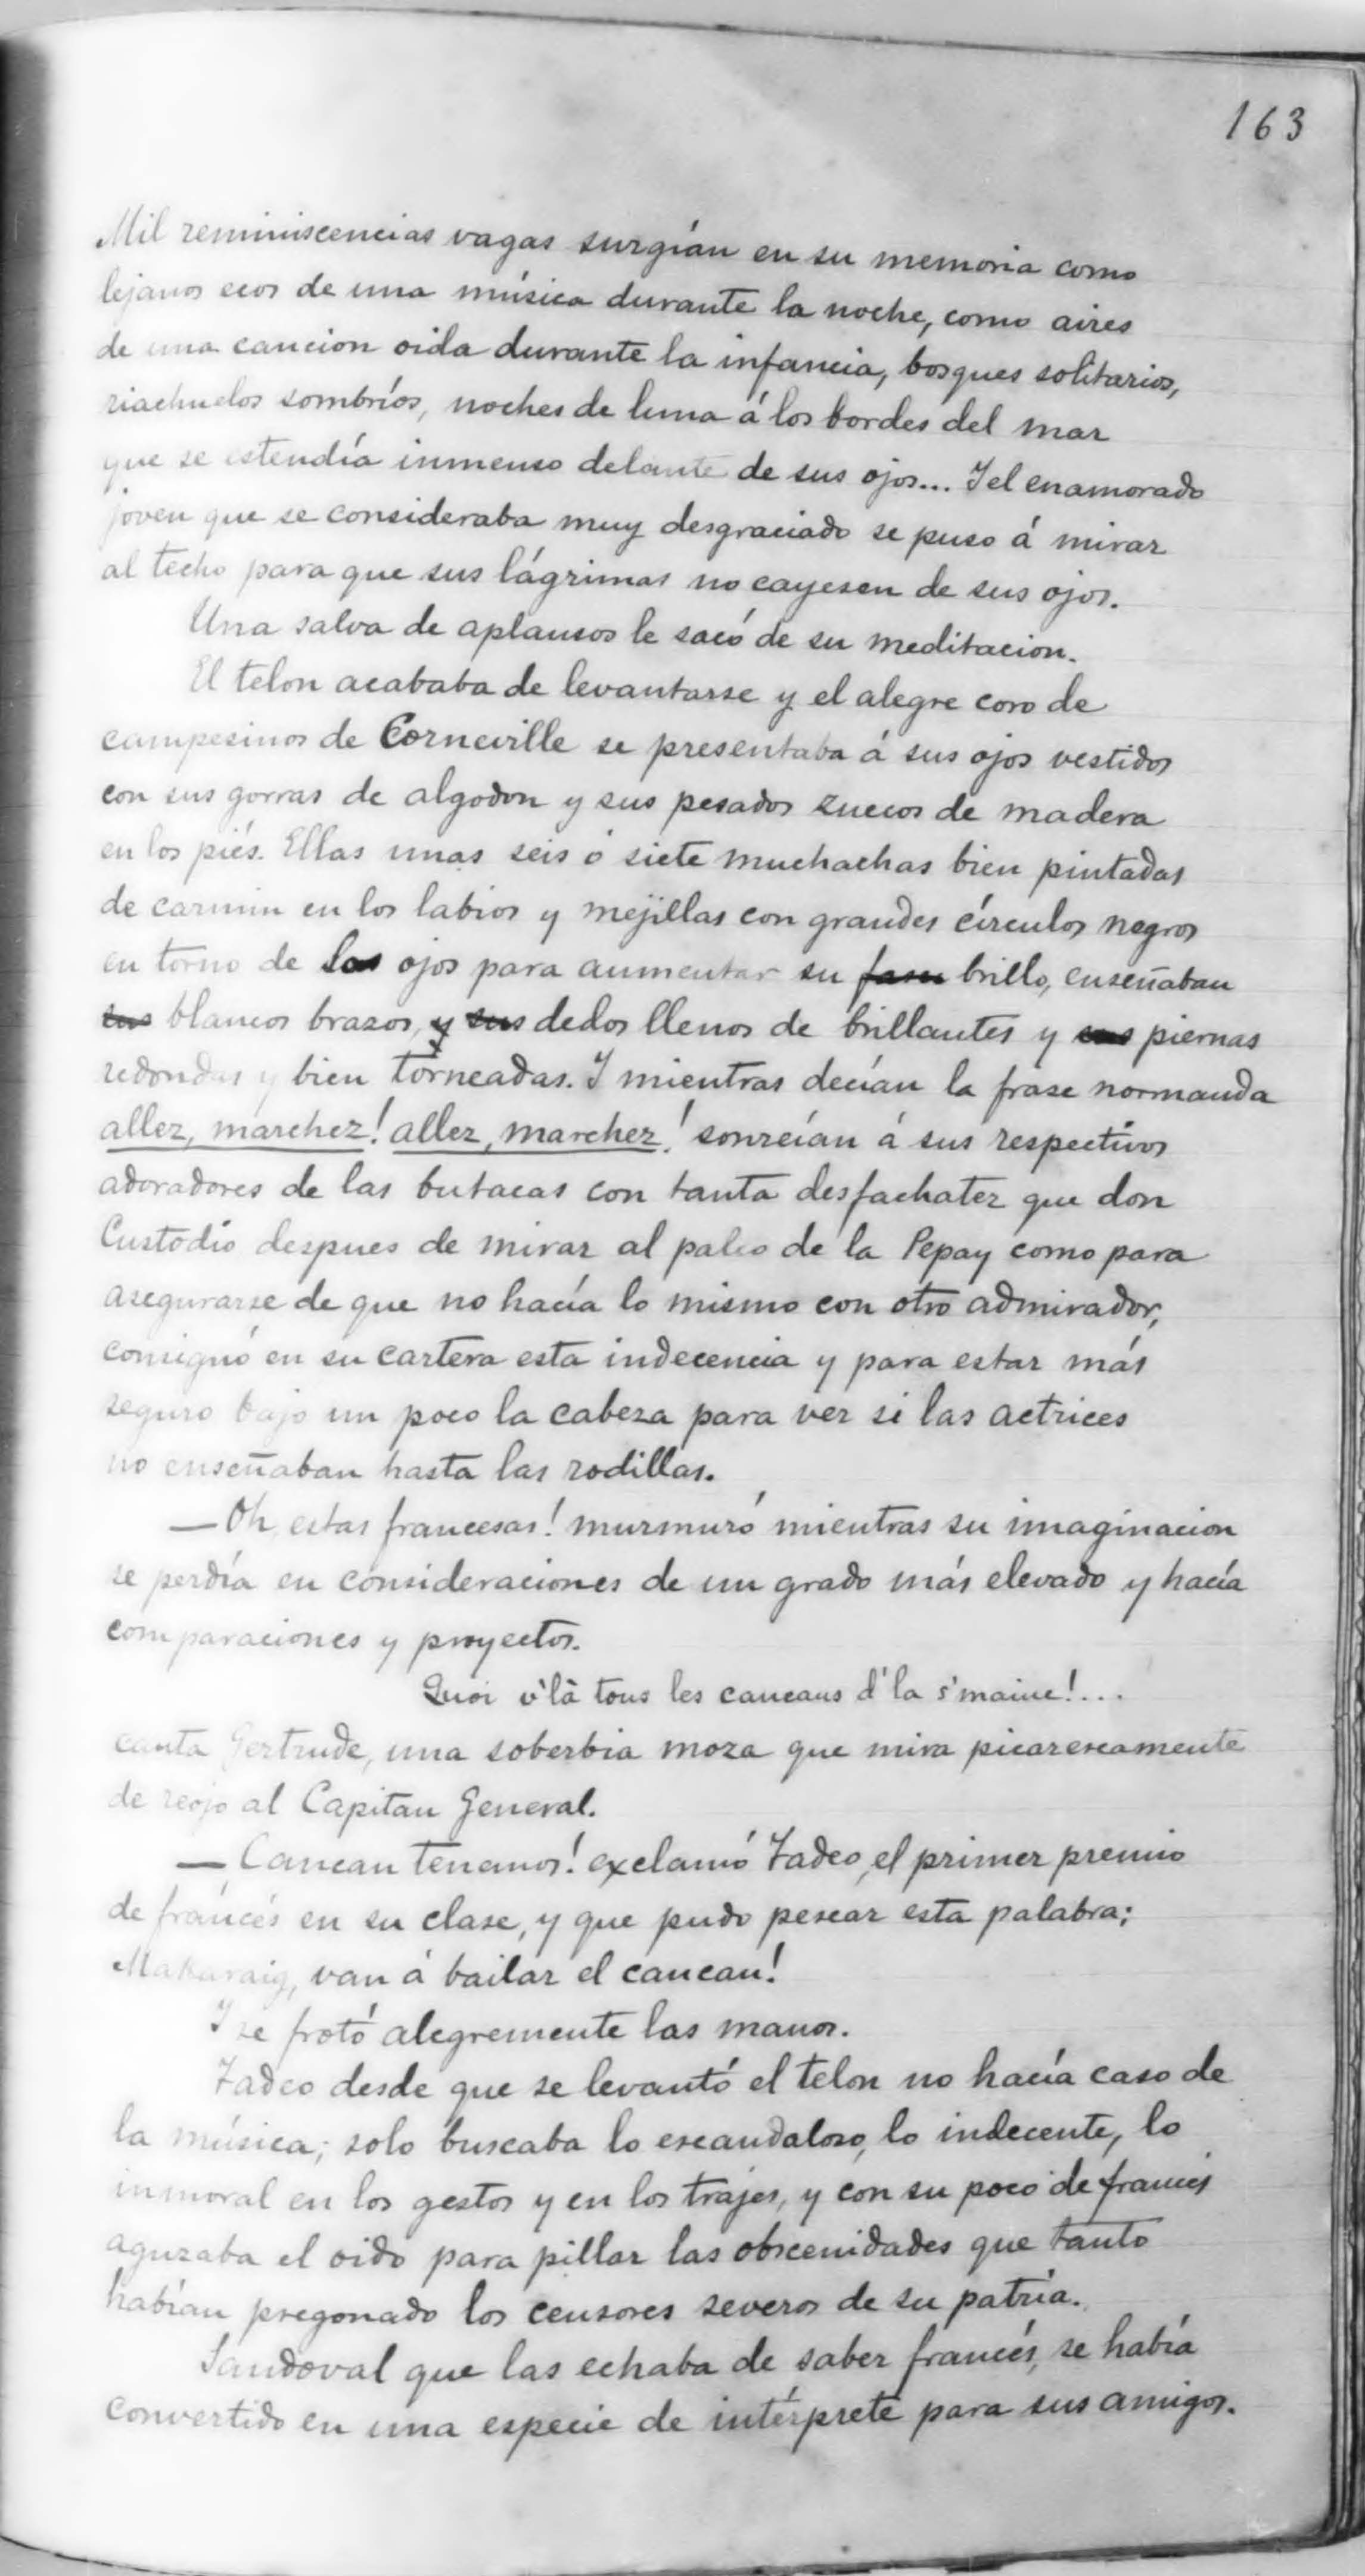 163
Mil reminiscencias vagas surgían en su memoria como
lejanos ecos de una música durante la noche, como aires
de una cancion oida durante la infancia, bosques solitarios,
riachuelos sombríos, noches de luna á los bordes del mar
que se estendía inmenso delante de sus ojos... I el enamorado
joven que se consideraba muy desgraciado se puso á mirar
al techo para que sus lágrimas no cayesen de sus ojos.
Una salva de aplausos le sacó de su meditacion.
El telon acababa de levantarse y el alegre coro de
campesinos de Corneville se presentaba á sus ojos vestidos
con sus gorras de algodon y sus pesados zuecos de madera
en los piés. Ellas unas seis ó siete muchachas bien pintadas
de carmin en los labios y mejillas con grandes círculos negros
en torno de los ojos para aumentar su brillo, enseñaban
sus blancos brazos, y sus dedos llenos de brillantes y sus piernas
redondas y bien torneadas. I mientras decían la frase normanda
allez, marchez! allez, marchez! sonreían á sus respectivos
adoradores de las butacas con tanta desfachatez que don
Custodio despues de mirar al palco de la Pepay como para
asegurarse de que no hacía lo mismo con otro admirador,
consignó en su cartera esta indecencia y para estar más
seguro bajo un poco la cabeza para ver si las actrices
no enseñaban hasta las rodillas.
— Oh, estas francesas! murmuró mientras su imaginacion
se perdía en consideraciones de un grado más elevado y hacía
comparaciones y proyectos.
Quoi v'là tous les cancans d'la s'maine!...
canta Gertrude, una soberbia moza que mira picarescamente
de reojo al Capitan General.
— Cancan tenemos! exclamó Tadeo, el primer premio
de francés en su clase, y que pudo pescar esta palabra;
Makaraig, van á bailar el cancan!
I se frotó alegremente las manos.
Tadeo desde que se levantó el telon no hacía caso de
la música; solo buscaba lo escandaloso, lo indecente, lo
inmoral en los gestos y en los trajes, y con su poco de francés
aguzaba el oido para pillar las obscenidades que tanto
habían pregonado los censores severos de su patria.
Sandoval que las echaba de saber francés, se había
convertido en una especie de intérprete para sus amigos.